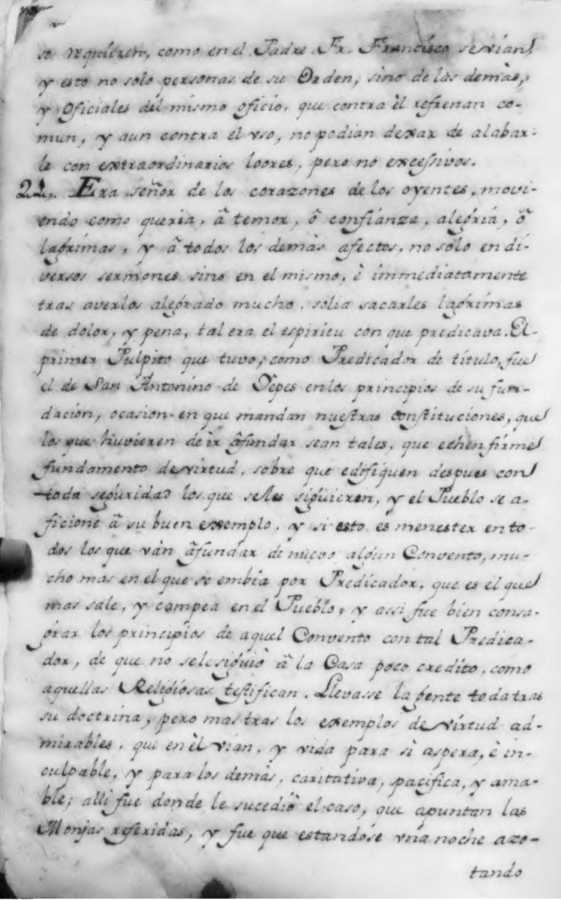 se requieren, como en el Padre Fr. Francisco se vian,
y esto no solo personas de su Orden, sino de las demàs,
y Oficiales del mismo oficio, que contra èl refrenan co-
mun, y aun contra el vso, no podian dexar de alabar-
le con extraordinarios loores, pero no excessivos.
22. Era señor de los corazones de los oyentes, movi-
endo como queria, â temor, ô confianza, alegria, ô
lagrimas, y â todos los demàs afectos, no solo en di-
versos sermones sino en el mismo, è immediatamente
tras averlos alegrado mucho, solia sacarles lagrimas
de dolor, y pena, tal era el espiritu con que predicava. El
primer Pulpito que tuvo, como Predicador de titulo, fue
el de San Antonino de Yepes en los principios de su fun-
dacion, ocasion en que mandan nuestras Constituciones, que
los que huvieren de ir â fundar sean tales, que echen firme
fundamento de virtud, sobre que edifiquen despues con
toda seguridad los que se les siguieren, y el Pueblo se a-
ficione â su buen exemplo, y si esto es menester en to-
dos los que vàn â fundar de nuevo algun Convento, mu-
cho mas en el que se embia por Predicador, que es el que
mas sale, y campea en el Pueblo, y assi fue bien consa-
grar los principios de aquel Convento con tal Predica-
dor, de que no se le siguiò â la Casa poco credito, como
aquellas Religiosas testifican. Llevasse la gente toda tras
su doctrina, pero mas tras los exemplos de virtud ad-
mirables, que en èl vian, y vida para si aspera, è in-
culpable, y para los demàs, caritativa, pacifica, y ama-
ble; alli fue donde le sucediò el caso, que apuntan las
Monjas referidas, y fue que estandose vna noche azo-
tando